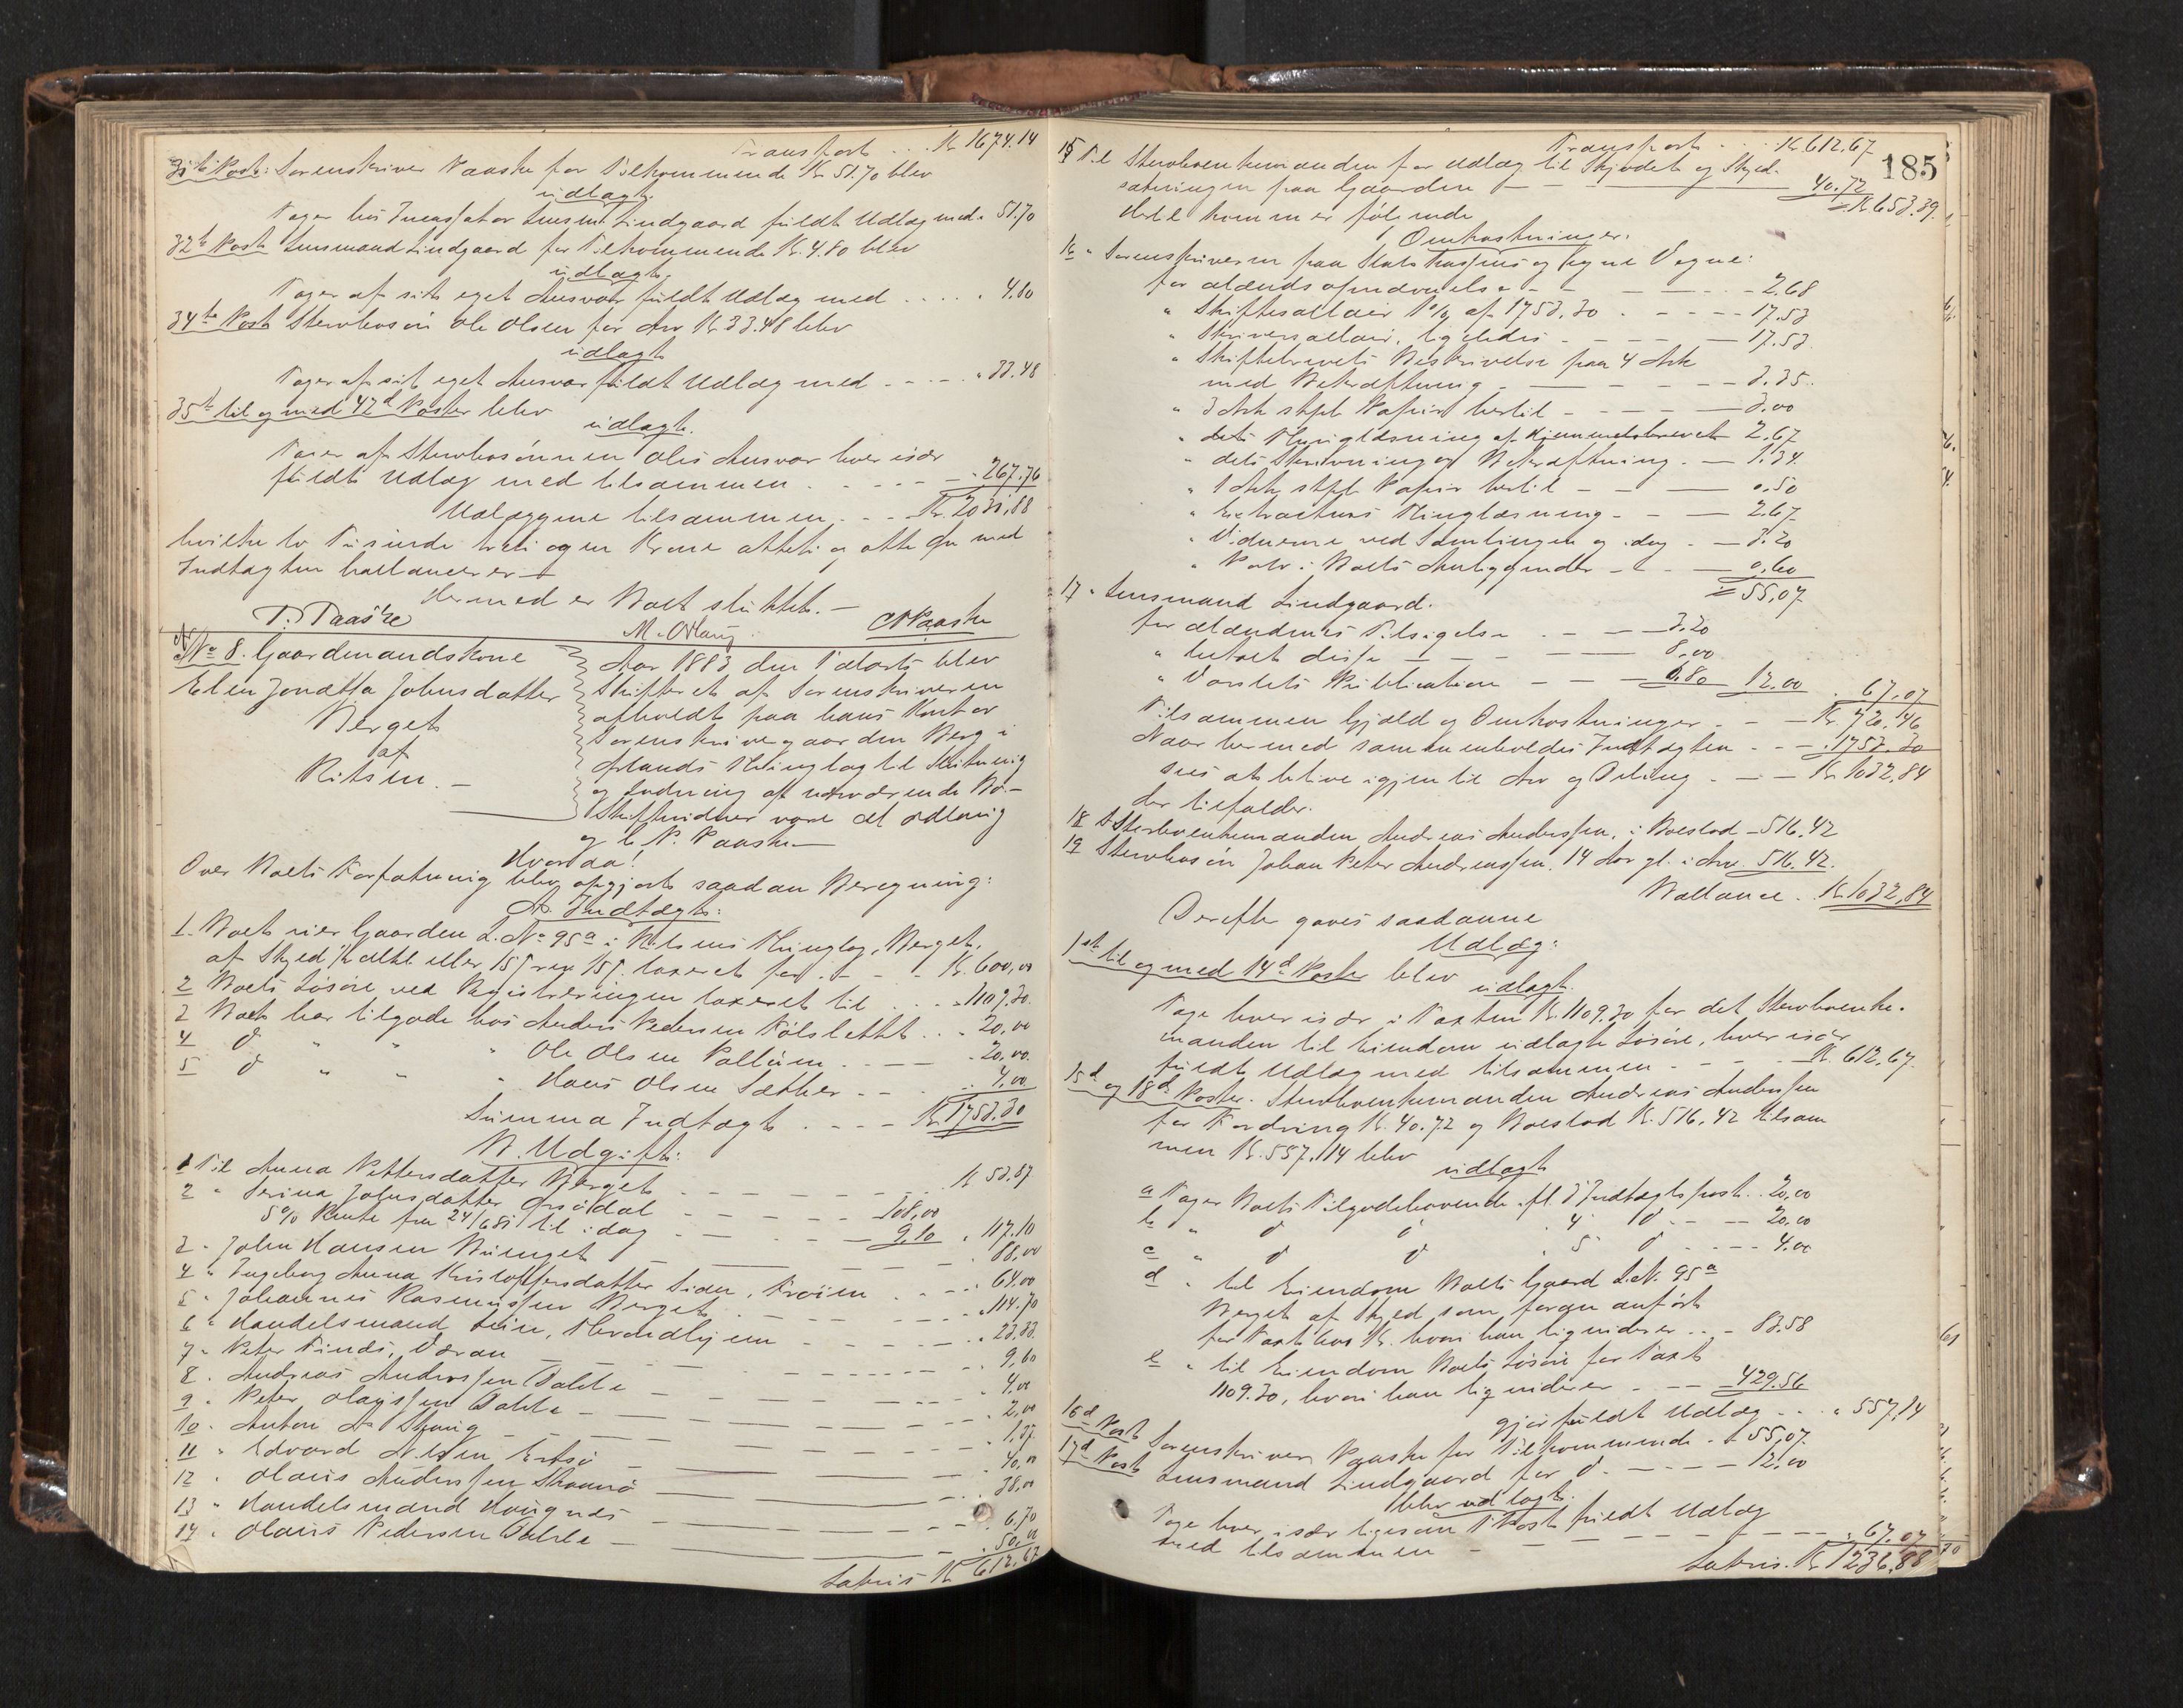 Transport . . . Kr 1674.14
Post: Sorenskriver Paaske for Tilkommende Kr 51.70 blev
udlagt.
Tager hos Incassator Lensm. Lindgaard fuldt Udlæg med " 51.70
32te Post Lensmand Lindgaard for Tilkommende Kr. 4.80 blev
udlagt.
Tager af sit eget Ansvar fuldt Udlæg med . . . . . " 4.80
34te Post Stervbosøn Ole Olsen for Arv Kr 33.48 blev
udlagt
Tager af sit eget Ansvar fuldt Udlæg med - - - - - " 33.48
35te til og med 42d Poster blev
udlagt.
Tager af Stervbosønnen Oles Ansvar hver især
fuldt Udlæg med tilsammen . . - - - - " 267.76
Udlæggene tilsammen . - - Kr. 2031,88
hvilke to Tusinde treti og en Krone otteti og otte Øre med
Indtægten ballancerer —
Hermed er Boet sluttet. —
P. Paaske
M. Østlaug
C P Paaske
No 8. Gaardmandskone
Elen Jonetta Johnsdatter
Berget
af
Ritsen. —
Aar 1883 den blev
Skifteret af Sorenskriveren
afholdt paa hans Kontor
Sorenskrivergaarden Berg i
Ørlands Thinglag til Slutning
og Lodning af nærværende Bo. —
Skiftevidner vare
og C. P. Paaske —
Hvorda!
Over Boets Forfatning blev opgjort saadan Beregning:
A. Indtægt:
1. Boet eier Gaarden L. No 95a i Ritsens Thinglag, Berget,
af Skyld taxeret for . - - - Kr. 600,00
2 Boets Løsøre ved Registreringen taxeret til . . . - " 1109.30.
3 Boet har tilgode hos Anders Pedersen Følslettet . . . 20,00
4 d " " " Ole Olsen . - — - 20,00.
5 d " " " Hans Olsen Sæther - - . . 4,00
Summa Indtægt . . . - - Kr 1753.30
B. Udgift:
1 Til Anna Pettersdatter Berget - - - - - Kr 53.87
2 " Serina Johnsdatter - - - - - 108,00
5% Rente fra 24/6 81 til idag - — - — 9,10 " 117.10
3 " John Hansen — — - — - 88,00
4 " Ingeborg Anna Kristoffersdatter Lien, Frøien . . . - 64.00
5 " Johannes Rasmussen Berget - - - - - " 114.70
6 " Handelsmand Lein, Throndhjem - - - - - 23.33.
7 " Peter Finds,Væran — - - - - - 9,60
8 . Andreas Anderssen Dahle — - - - - - 4,00
9 " Peter Olaussen Dahle — - - - - 2,00
10 . Anton — - - - - 1,37.
11 " Edvard Nilsen — — — - . 40,00
12 . Olaus Anderssen — — — - . . 38,00
13 " Handelsmand Haugnes — — — - . 6,70
14 . Olaus Pedersen Dahle — — — - . 50,00
Latus Kr 612.67
185
Transport . . . Kr 612.67
15 Til Stervboenkemanden for Udlæg til Skjødet og Skyld-
sætningen paa Gaarden — - - — 40.72
Kr 653.39.
Hertil kommer følgende
Omkostninger.
16 " Sorenskriveren paa Statskassens og egne Vegne:
for - - - — - - - - 2.68
" Skiftesallair 1% af 1753.30 . - - - - 17.53
" Skriversallair, ligeledes - - - - — 17.53.
" Skiftebrevets Beskrivelse paa 4 Ark
med Bekræftning - — - - - - 3.35.
" 3 Ark stpl. Papir hertil - - - - — 3.00
" dets Thinglæsning af Hjemmelsbrevet - 2.67
" dets Skrivning og Bekræftning . — 1.34.
" 1 Ark stpl. Papir hertil - - — 0.50
" Extractens Thinglæsning - - — 2.67
" Vidnerne ved Samlingen og idag . — 3.20
" Porto i Boets Anliggender - - — 0,60
55,07
17 " Lensmand Lindgaard.
for Tilsigelse . - - — 3.20
" — - - - — 8,00.
" Publication - - - 0.80 12.00 . 67.07
Tilsammen Gjæld og Omkostninger . - — Kr. 720.46
Naar hermed sammenholdes Indtægten . - - . 1753.30
sees at blive igjen til Arv og Deling - — - Kr 1032,84
der tilfalder.
18 Stervboenkemanden Andreas Anderssen, i Boeslod - 516.42
19 Stervbosøn Johan Peter Andreassen, 14 Aar gl. i Arv 516.42.
Ballance . Kr 1032,84
Derefter gaves saadanne
Udlæg:
1ste til og med 14d Poster blev
udlagt.
Tage hver især i Taxten Kr. 1109.30 for det Stervboenke-
manden til Eiendom udlagte Løsøre, hver især
fuldt Udlæg med tilsammen - - - — Kr. 612,67.
15d og 18d Poster. Stervboenkemanden Andreas Anderssen
for Fordring Kr. 40.72 og Boeslod Kr. 516,42 tilsam
men Kr. 557.14 blev
udlagt
a Tager Boets Tilgodehavende ifl. 3 Indtægtspost . . 20,00
b " d d . 4 d - - — 20.00
c " d d . 5 d . - - - 4.00
d " til Eiendom Boets Gaard L. N. 95a
Berget af Skyld som foran anført
for Taxt 600 Kr. hvori han liqviderer . . - 83.58
e " til Eiendom Boets Løsøre for Taxt
1109.30, hvori han liqviderer - — — 429.56
gjør fuldt Udlæg - . . " 557,14
16d Post Sorenskriver Paaske for Tilkommende . 55,07.
17d Post Lensmand Lindgaard for d. - — - - 12.00
blev udlagt.
Tage hver især ligesom 1 Post fuldt Udlæg
med tilsammen - — - - - - - - - . 67,07
Latus. Kr 1236,88